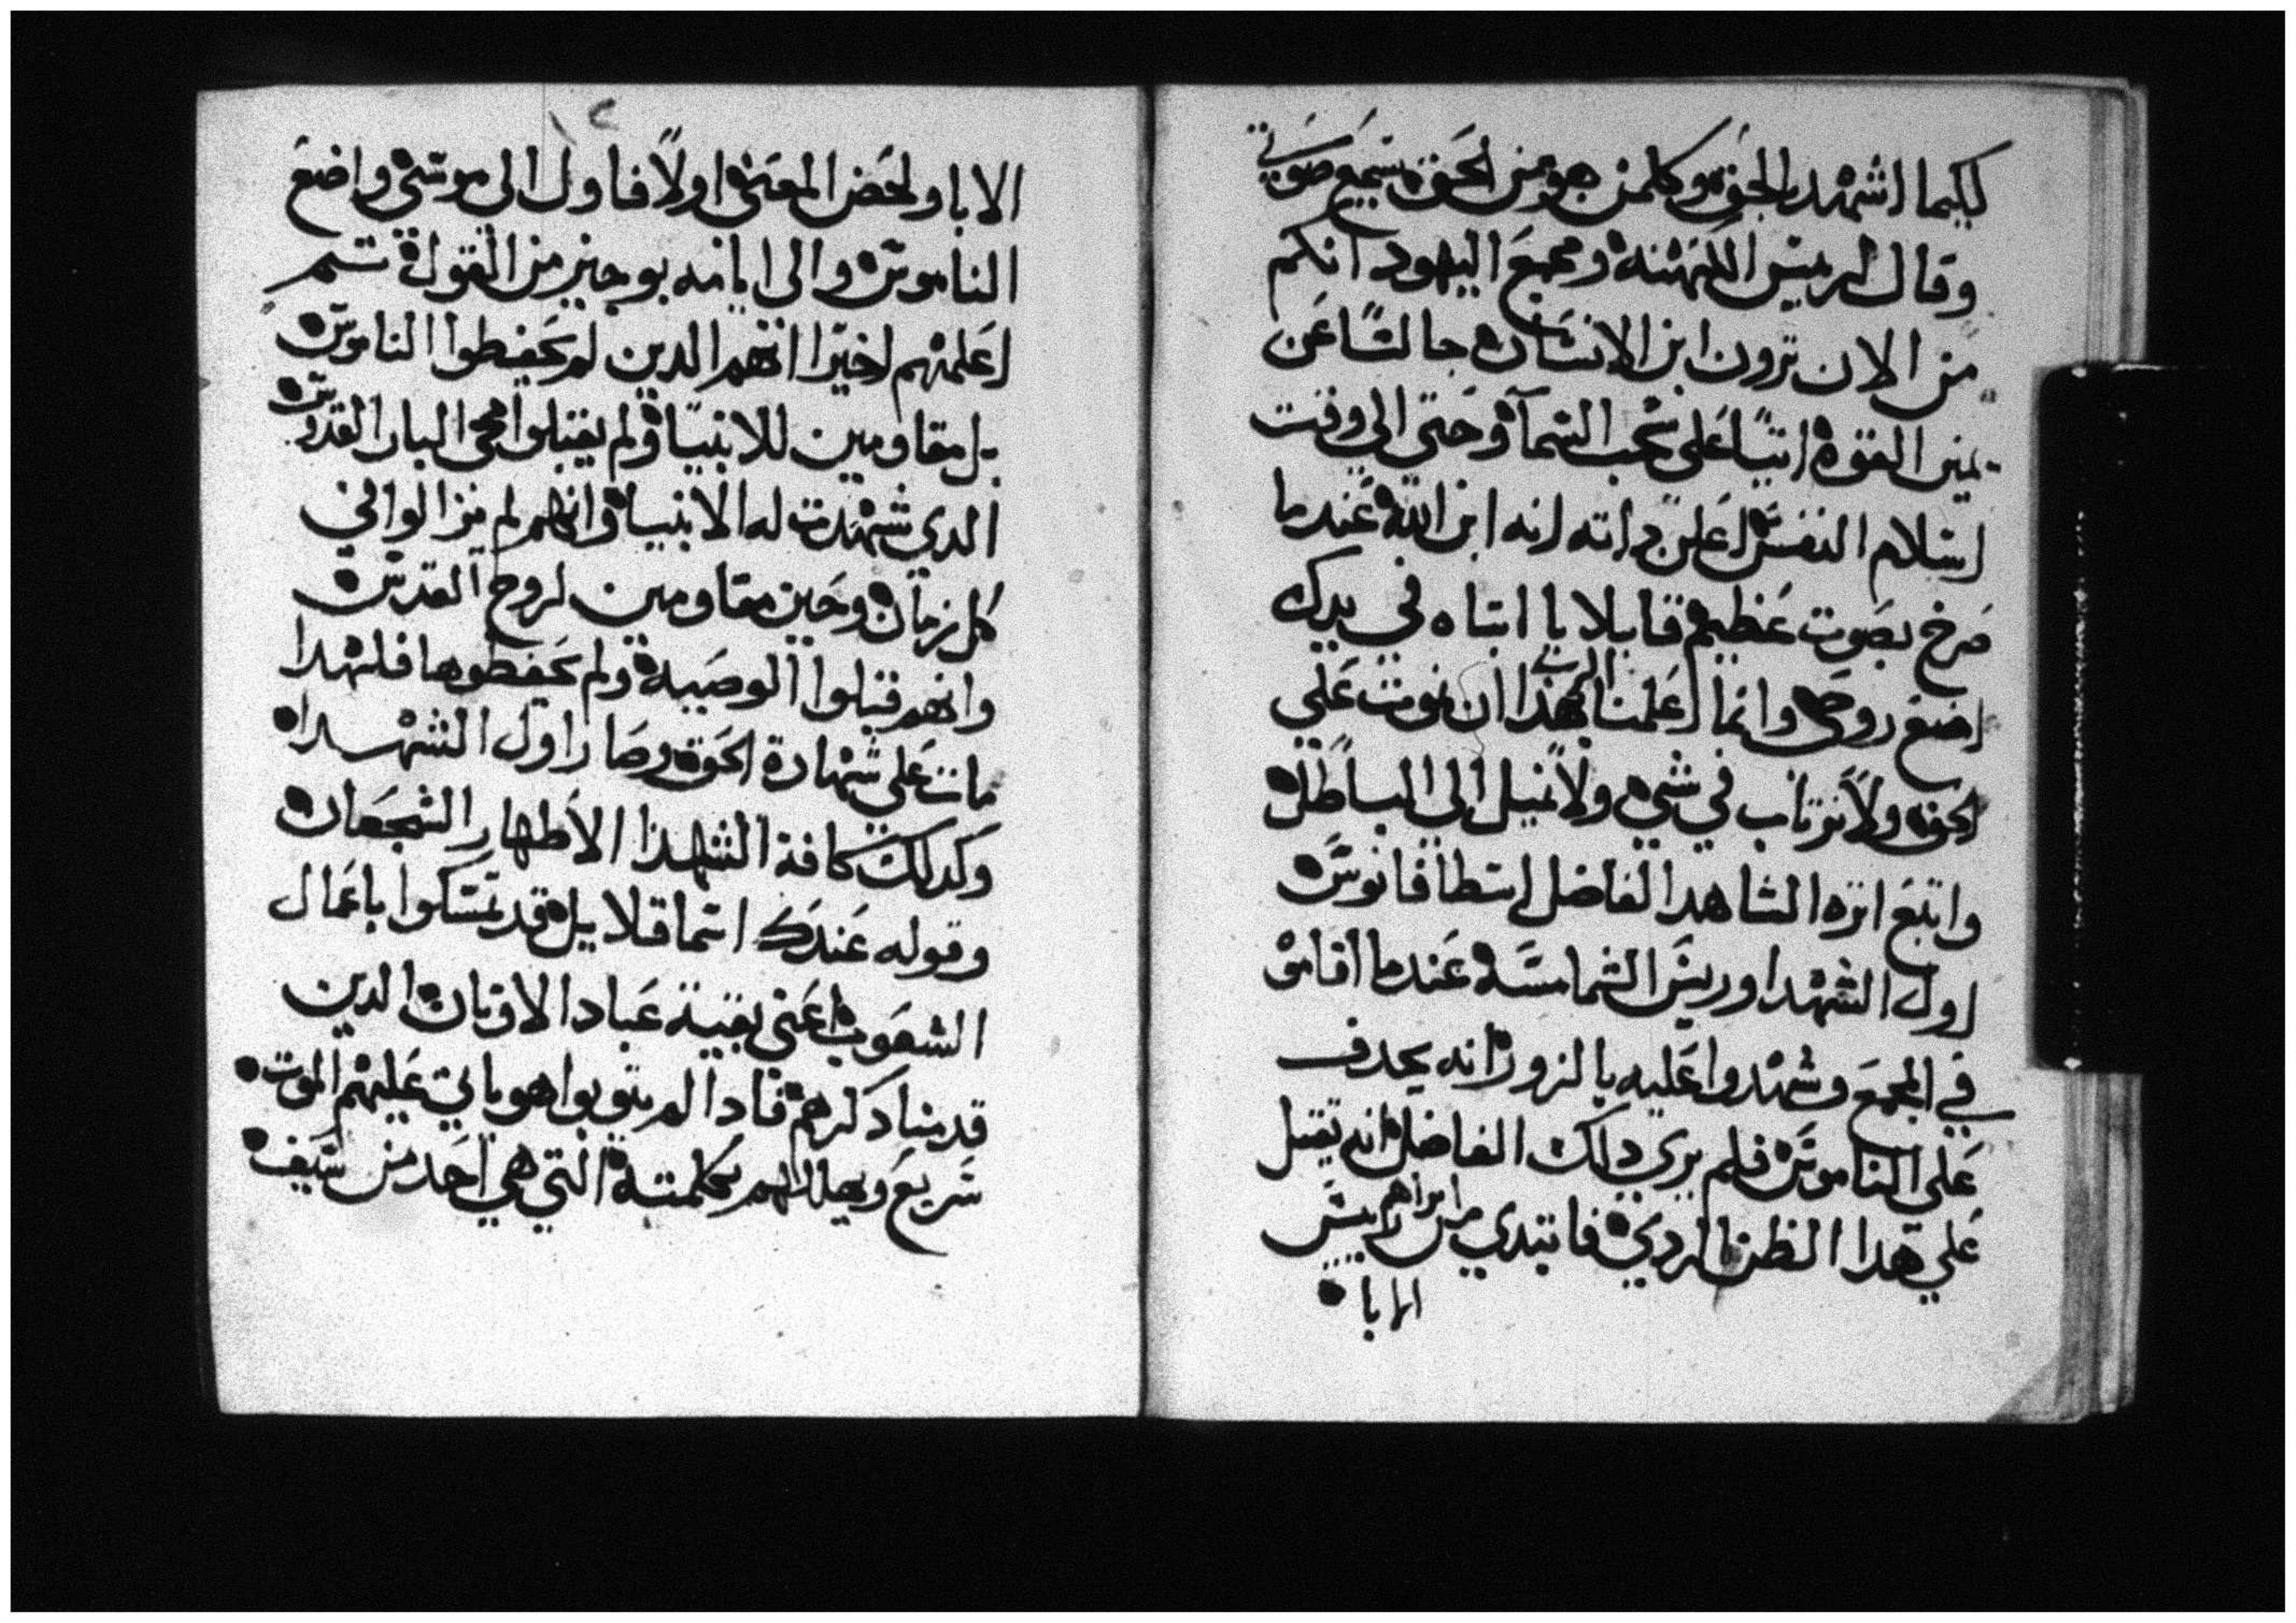 لكيما اشهد بالحق وكلمن هو من الحق يسمع صوتي
وقال لريس الكهنه ومجمع اليهود انكم
من الان ترون ابن الانسان جالسًا عن
يمين القوه اتيًا علي سحب السما وحتي الي وقت
اسلام النفس اعلن داته انه ابن الله عندما
صرخ بصوت عظيم قايلا يا ابتاه في يدك
اضع روحي وانما اعلمنا الرب بهذا ان نموت علي
الحق ولا نرتاب في شي ولا نميل الي الباطل
واتبع اتره الشاهد الفاضل اسطافانوس
اول الشهدا وريس الشمامسه عندما اقاموه
في المجمع وشهدوا عليه بالزور انه يجدف
علي الناموس فلم يري دلك الفاضل انه يقتل
علي هدا الظن الردي فابتدي من ابراهيم راييس
الابا
٢
الابا ولخص المعني اولًا فاول الي موسي واضع
الناموس والي ايامه بوجيز من القول تم
اعلمهم اخيرًا انهم الدين لم يحفظوا الناموس
بل مقاومين للانبيا ولم يقبلوا مجي البار القدوس
الدي شهدت له الانبيا وانهم لم يزالوا في
كل زمان وحين مقاومين لروح القدس
وانهم قبلوا الوصيه ولم يحفظوها فلهدا
مات علي شهادة الحق وصار اول الشهدا
وكدلك كافة الشهدا الاطهار الشجعان
وقوله عندك اسما قلايل قد تمسكوا باعمال
الشعوب اعني بقية عباد الاوتان الدين
قدمنا دكرهم فادا لم يتوبوا هو ياتي عليهم الموت
سريع ويهلكهم بكلمته التي هي احد من سيف